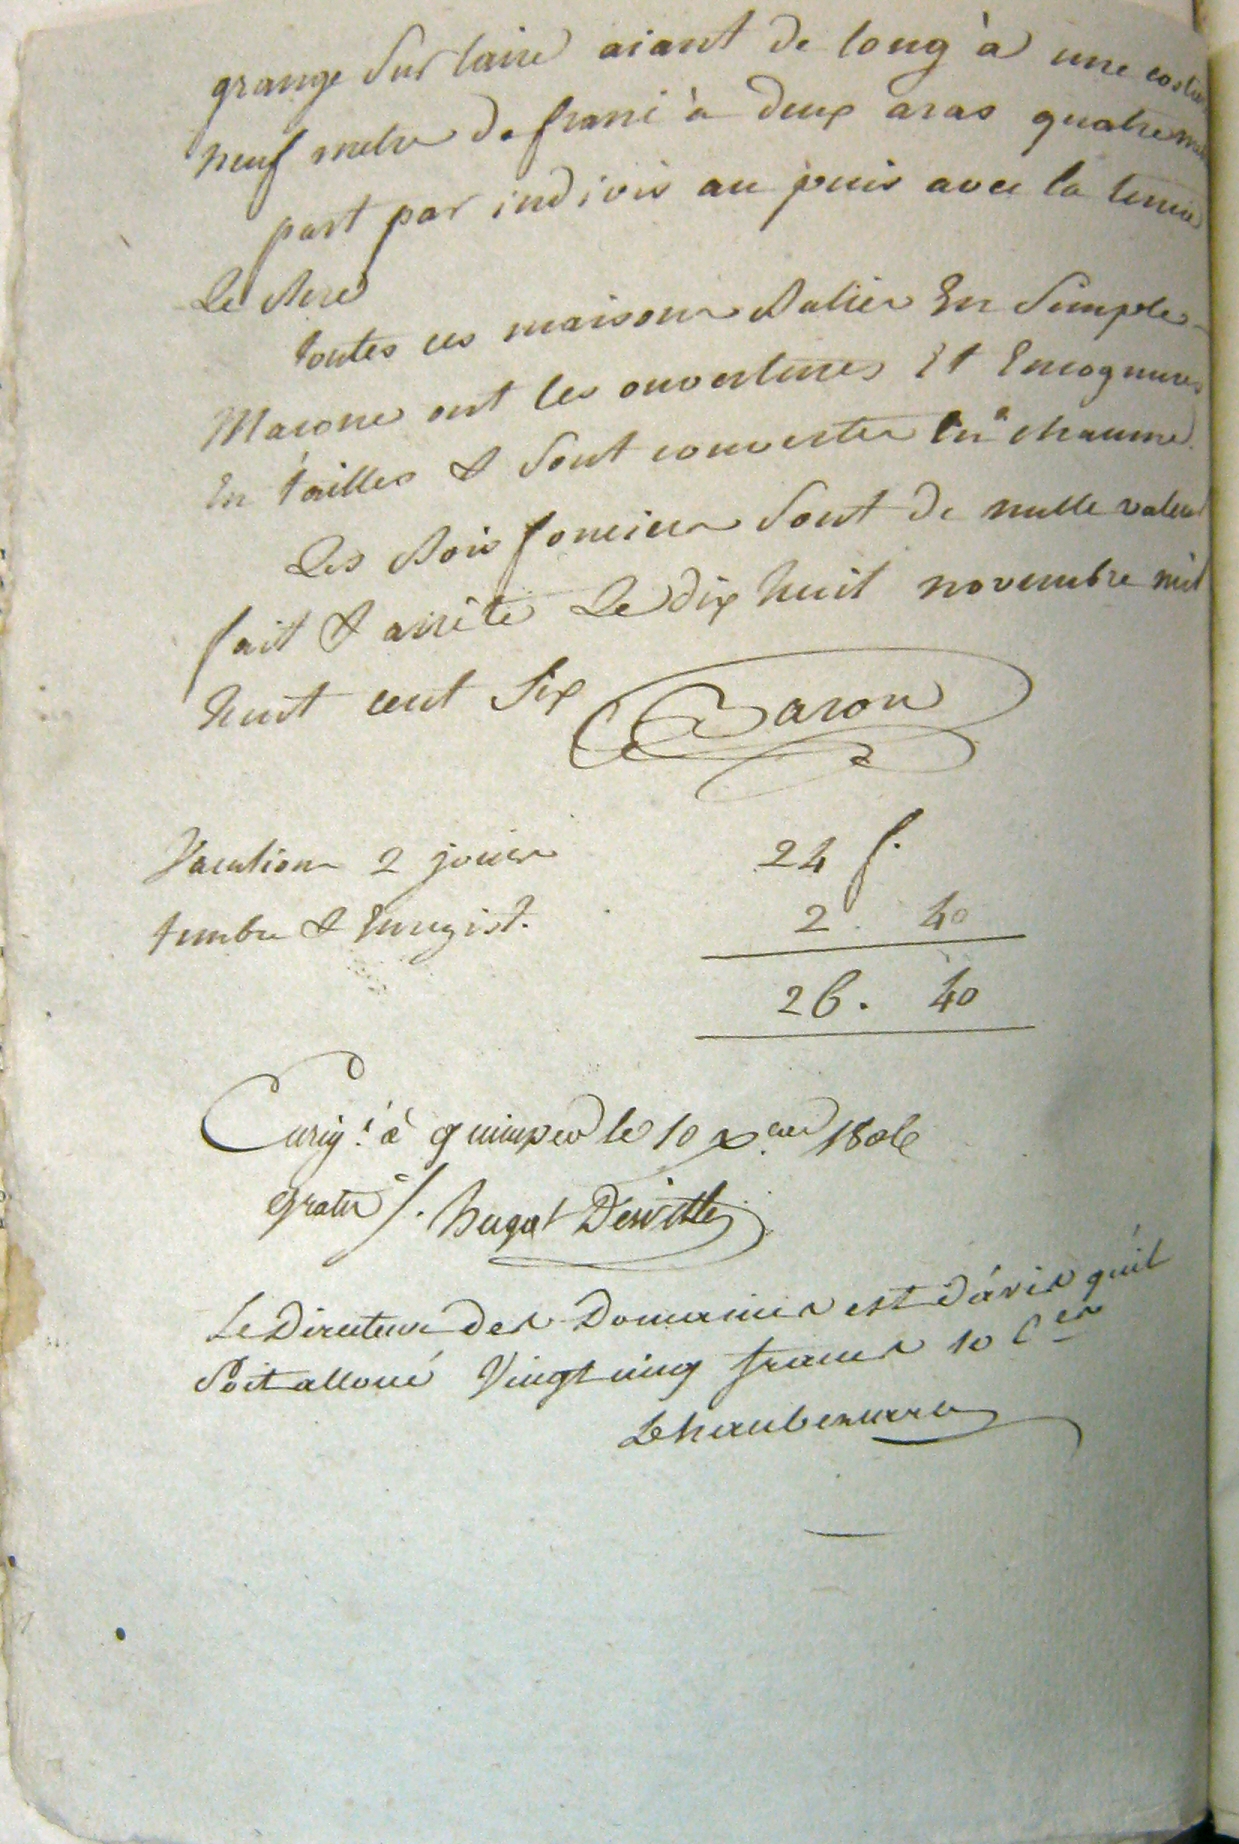 grange sur laire aiant de long à une costiere
neuf metre de franc à deux aras quatre
part par indivis au puis avec la tenue
Le Bere
toutes ces maisons Baties En Simple
Maconne ont les ouvertures Et Encognures
En tailles & Sont couvertes En chaume
Les Bois fonciers Sont de nulle valeur
fait & arrêté Le dix huit novembre mil
huit cent Six Baron
Vacations 2 jours 24 f.
timbre & Enregist. 2. 40
26. 40
Enrig.t à quimper le 10 x.bre 1806
gratis /. hugot Derville
Le Directeur des Domaines est d'avis qu'il
Soit alloué Vingt cinq francs 10 C.es